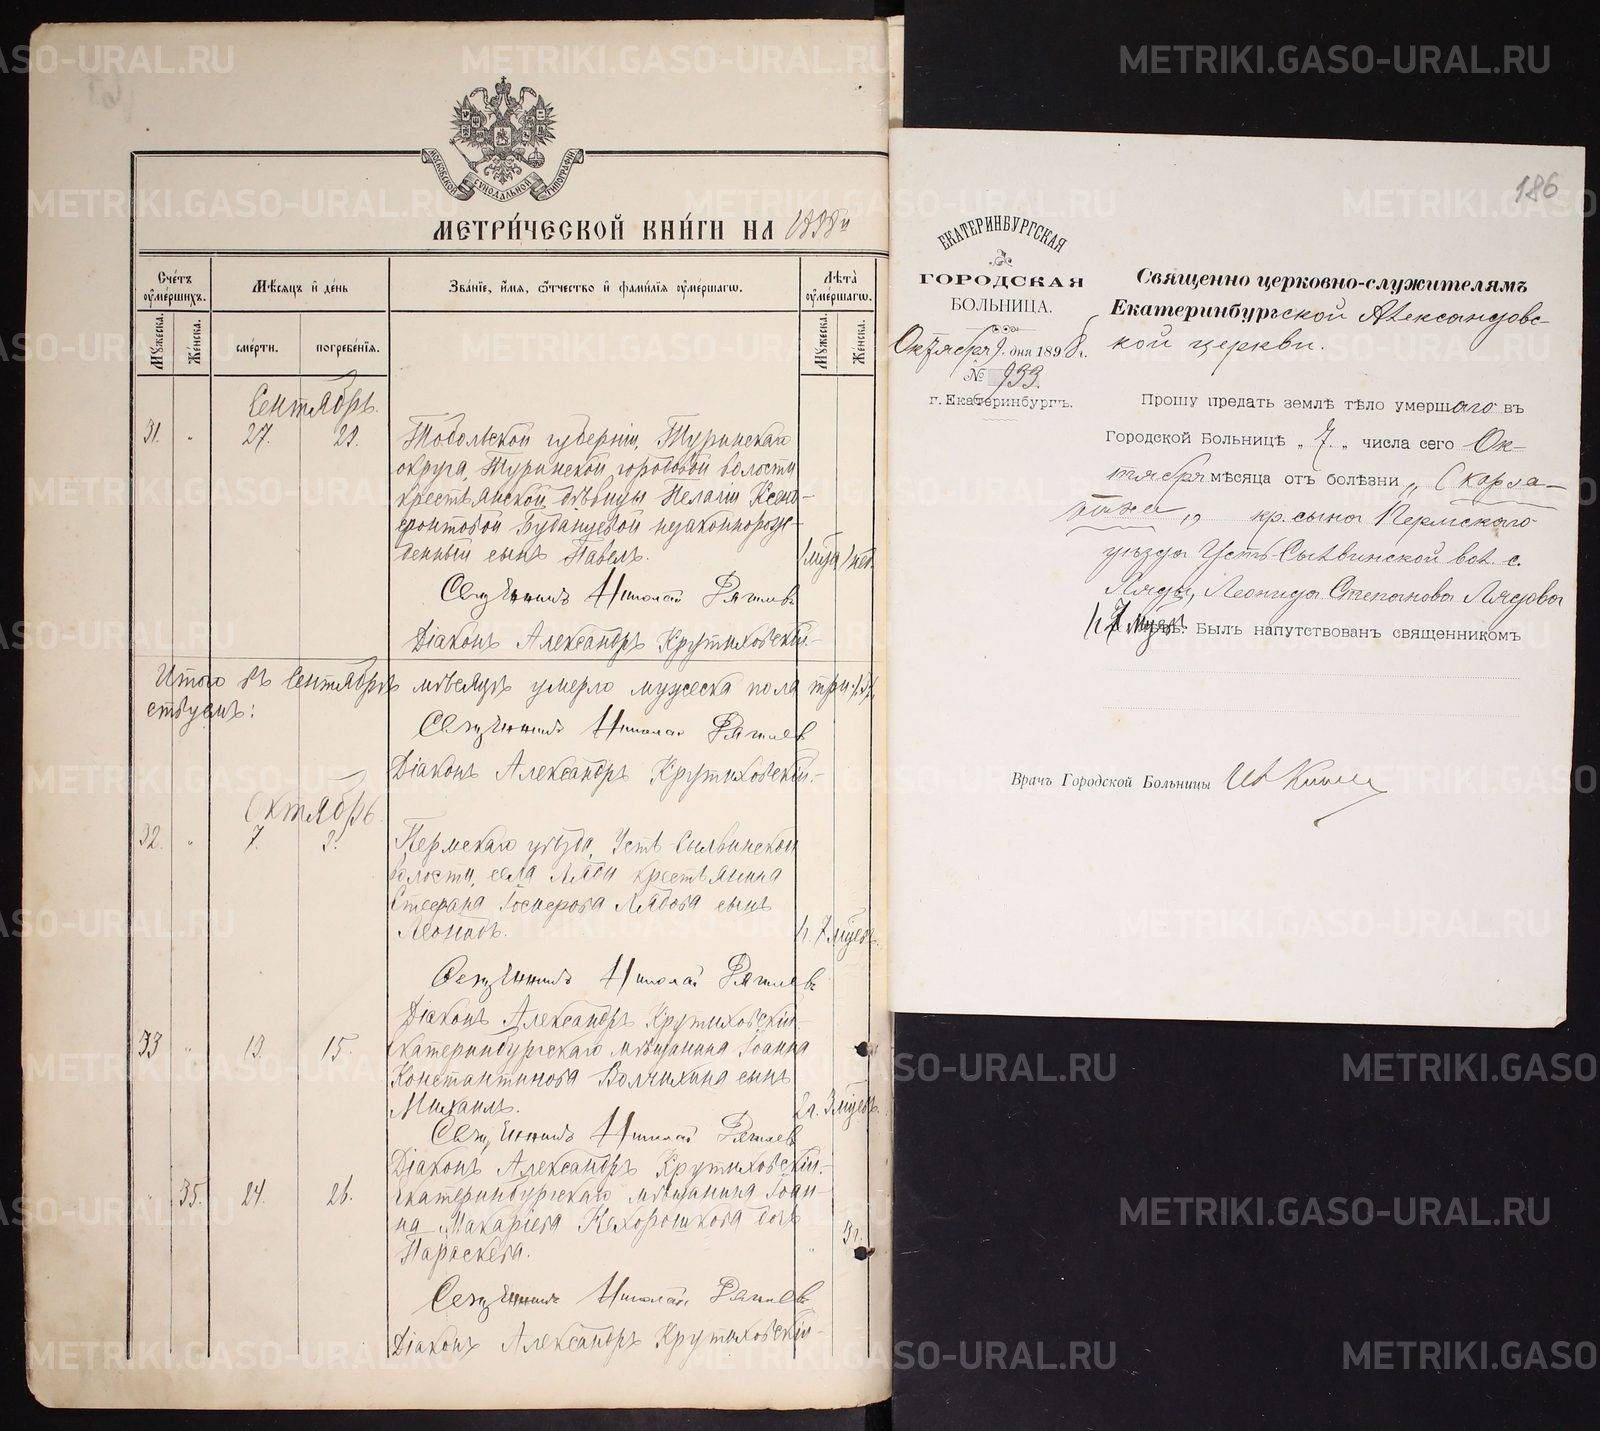 МОСКОВСКОЙ СѴНОДАЛЬНОЙ ТИПОГРАФІИ
МЕТРИ́ЧЕСКОЙ КНИ́ГИ НА 1898 г.
Сче́тъ ѹме́ршихъ.
Мѣ́сяцъ и де́нь
Зва́нїе, и́мѧ, ѻ́тчество и фами́лїѧ ѹме́ршагѡ.
Лѣ́та ѹме́ршагѡ.
Мꙋ́жеска.
Же́нска.
сме́рти.
погребе́нїѧ.
Мꙋ́жеска.
Же́нска.
Сентябрь.
31. " 27. 29. Тобольской губерніи, Туринскаго
округа, Туринской городовой волости
крестьянской дѣвицы Пелагіи Ксено-
фонтовой незаконнорож-
денный сынъ Павелъ.
Священникъ Николай
Діаконъ Александръ Крутиховскій.
Итого въ Сентябрѣ мѣсяцѣ умерло мужеска пола три
Священникъ Николай
Діаконъ Александръ Крутиховскій.
Октябрь.
32. " 7. 9. Пермскаго уѣзда, Усть Сылвинской
волости, села Ляды крестьянина
Стефана Лядова сынъ
Леонидъ. 1 г. 7 мѣсяц.
Священникъ Николай
Діаконъ Александръ Крутиховскій.
33 " 13. 15. Екатеринбургскаго мѣщанина Іоанна
Константинова Волчихина сынъ
Михаилъ. 2 г. 3 мѣсяц.
Священникъ Николай
Діаконъ Александръ Крутиховскій.
35. 24. 26. Екатеринбургскаго мѣщанина Іоан-
на Макаріева Нехорошкова дочь
Параскева. " 3 г.
Священникъ Николай
Діаконъ Александръ Крутиховскій.
186
ЕКАТЕРИНБУРГСКАЯ
ГОРОДСКАЯ
БОЛЬНИЦА.
Октября 9 дня 1898 г.
№ 933.
г. Екатеринбургъ.
Священно церковно-служителямъ
Екатеринбургской Александровс-
кой церкви.
Прошу предать землѣ тѣло умершаго въ
Городской Больницѣ „ 7 „ числа сего Ок-
тября мѣсяца отъ болѣзни „ Скарла-
тина „ кр. сына Пермскаго
уѣзда Усть-Сылвинской вол. с.
Ляды, Леонида Степанова Лядова
1 г. 7 мѣсяц. Былъ напутствованъ священникомъ
Врачъ Городской Больницы
METRIKI.GASO-URAL.RU